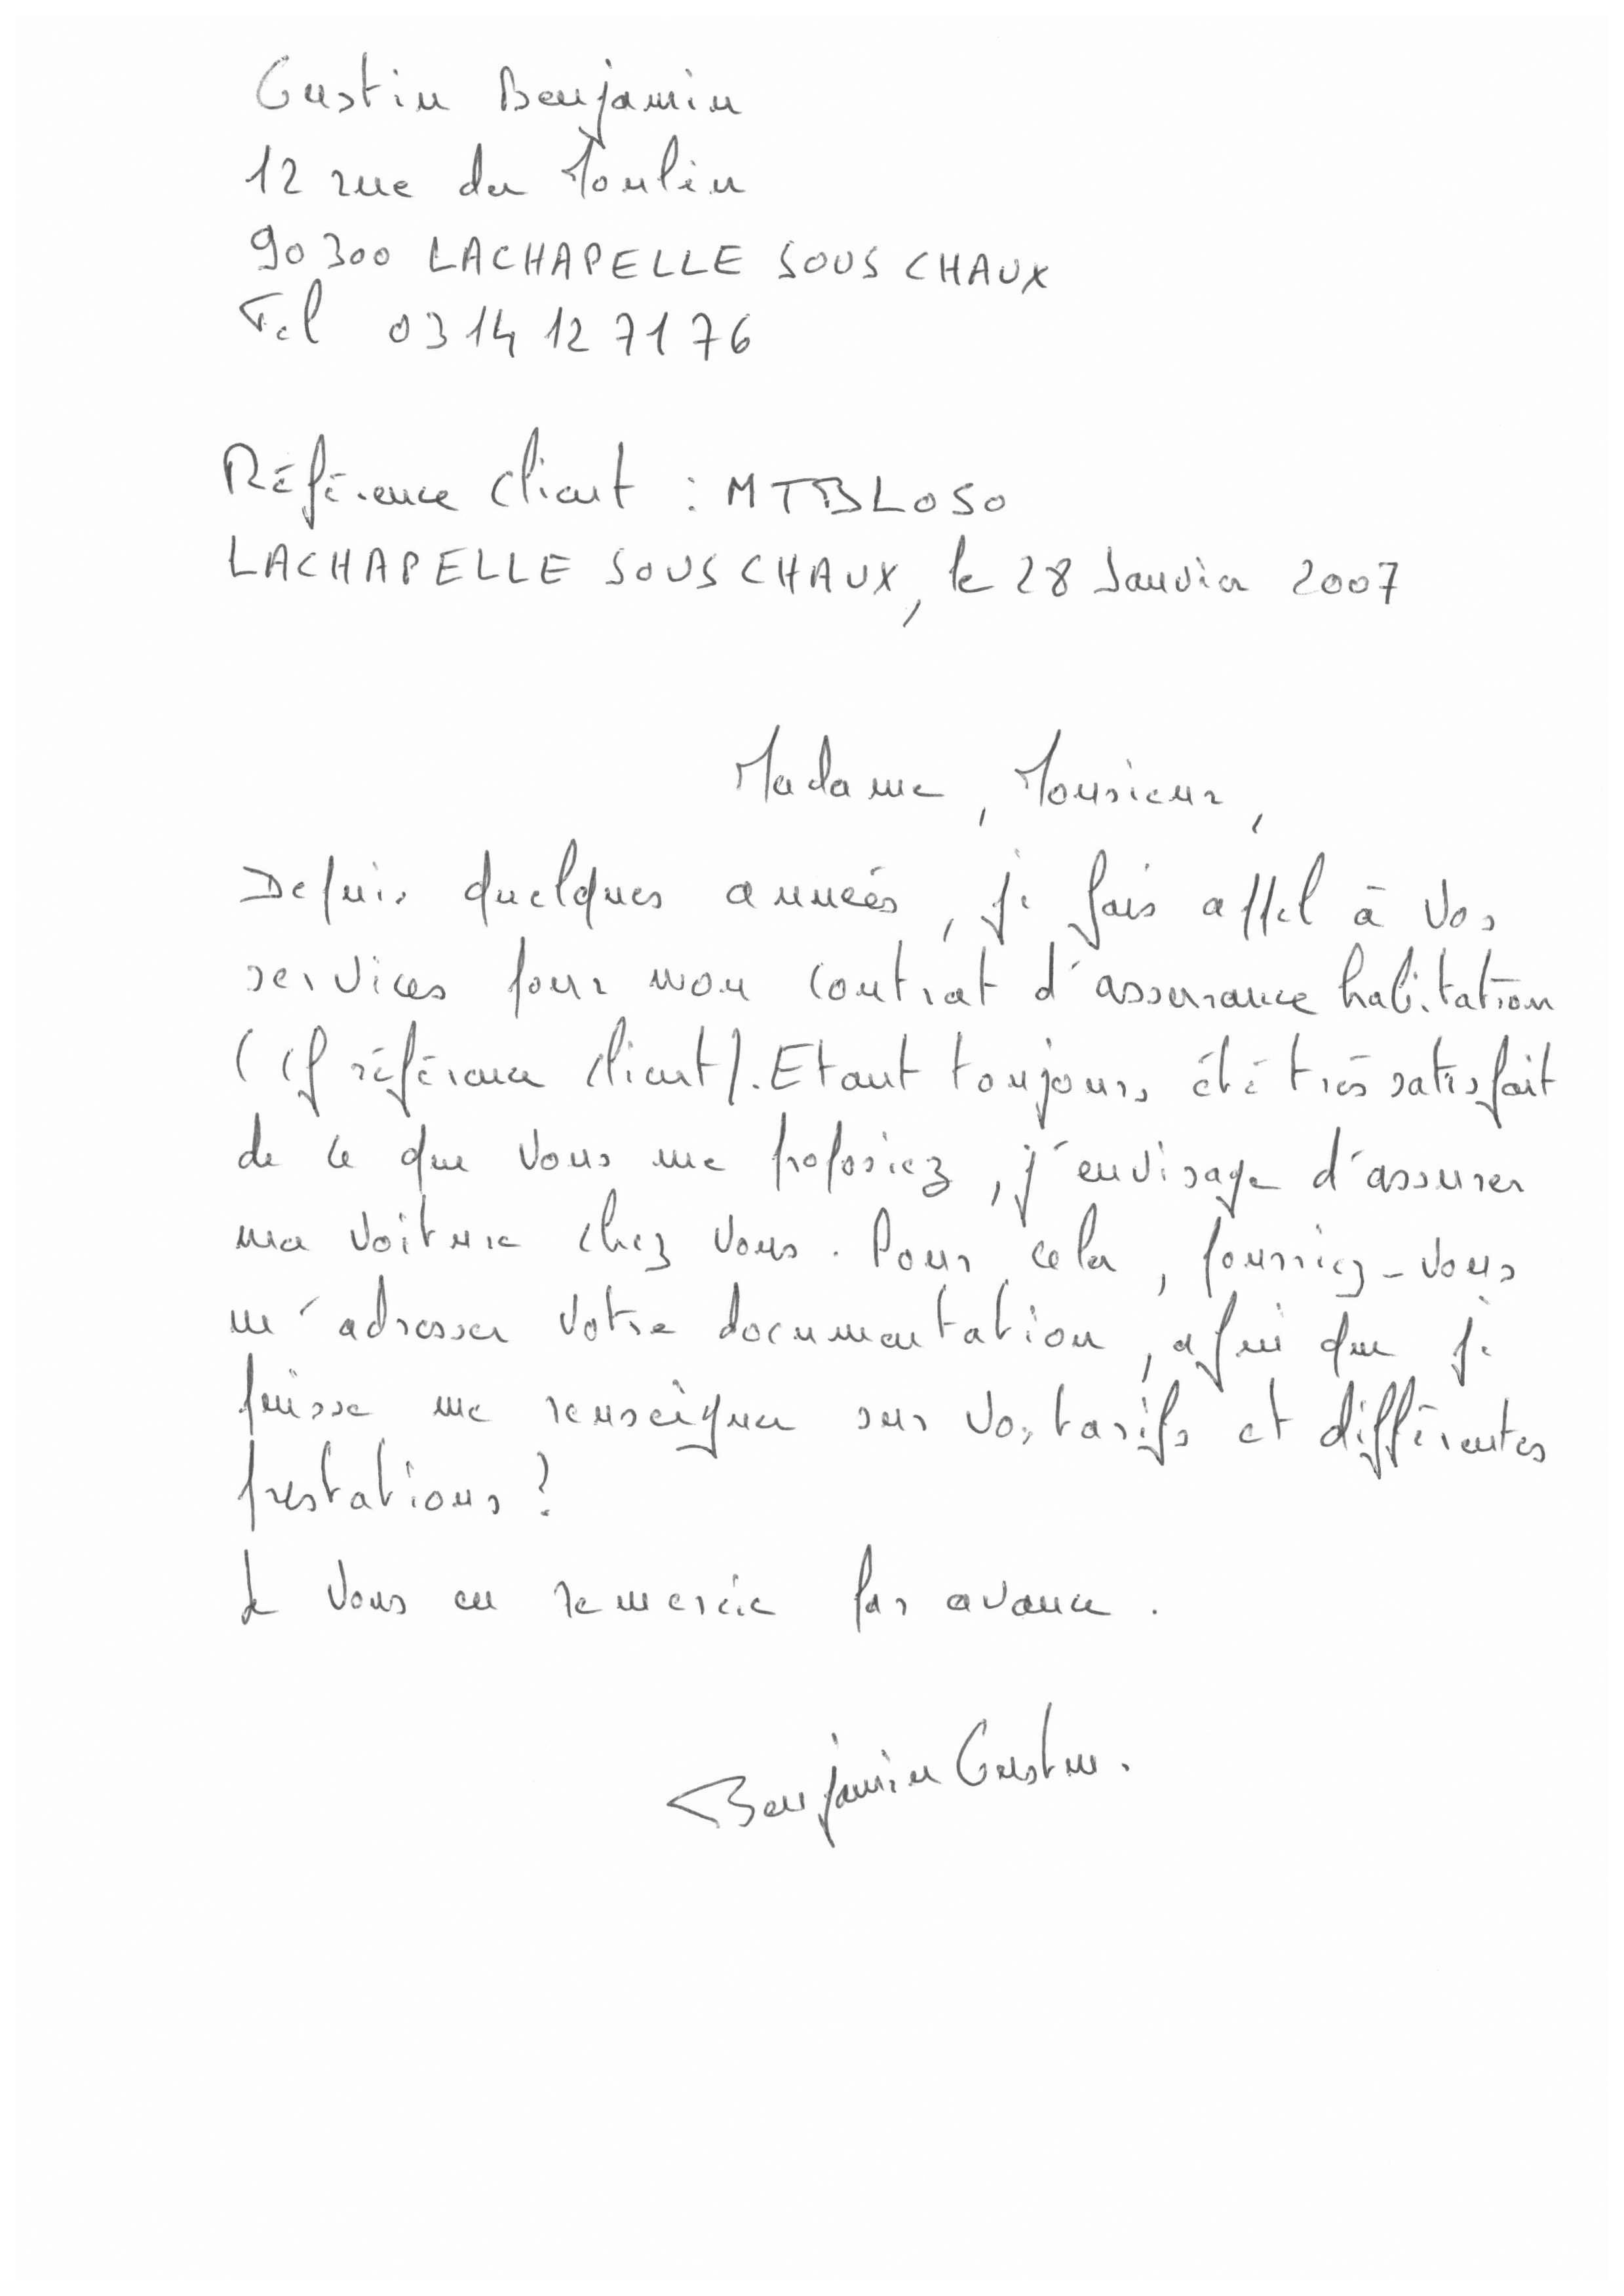 Gustin Benjamin
12 rue du Moulin
90300 LACHAPELLE SOUS CHAUX
Tel 03 14 12 71 76
Référence client : MTBLOSO
LACHAPELLE SOUS CHAUX, le 28 Janvier 2007
Madame, Monsieur,
Depuis quelques années, je fais appel à vos
services pour mon contrat d'assurance habitation
(cf référence client). Etant toujours été très satisfait
de ce que vous me proposiez, j'envisage d'assurer
ma voiture chez vous. Pour cela, pourriez-vous
m'adresser votre documentation, afin que je
puisse me renseigner sur vos tarifs et différentes
prestations ?
Je vous en remercie par avance.
Benjamin Gustin.